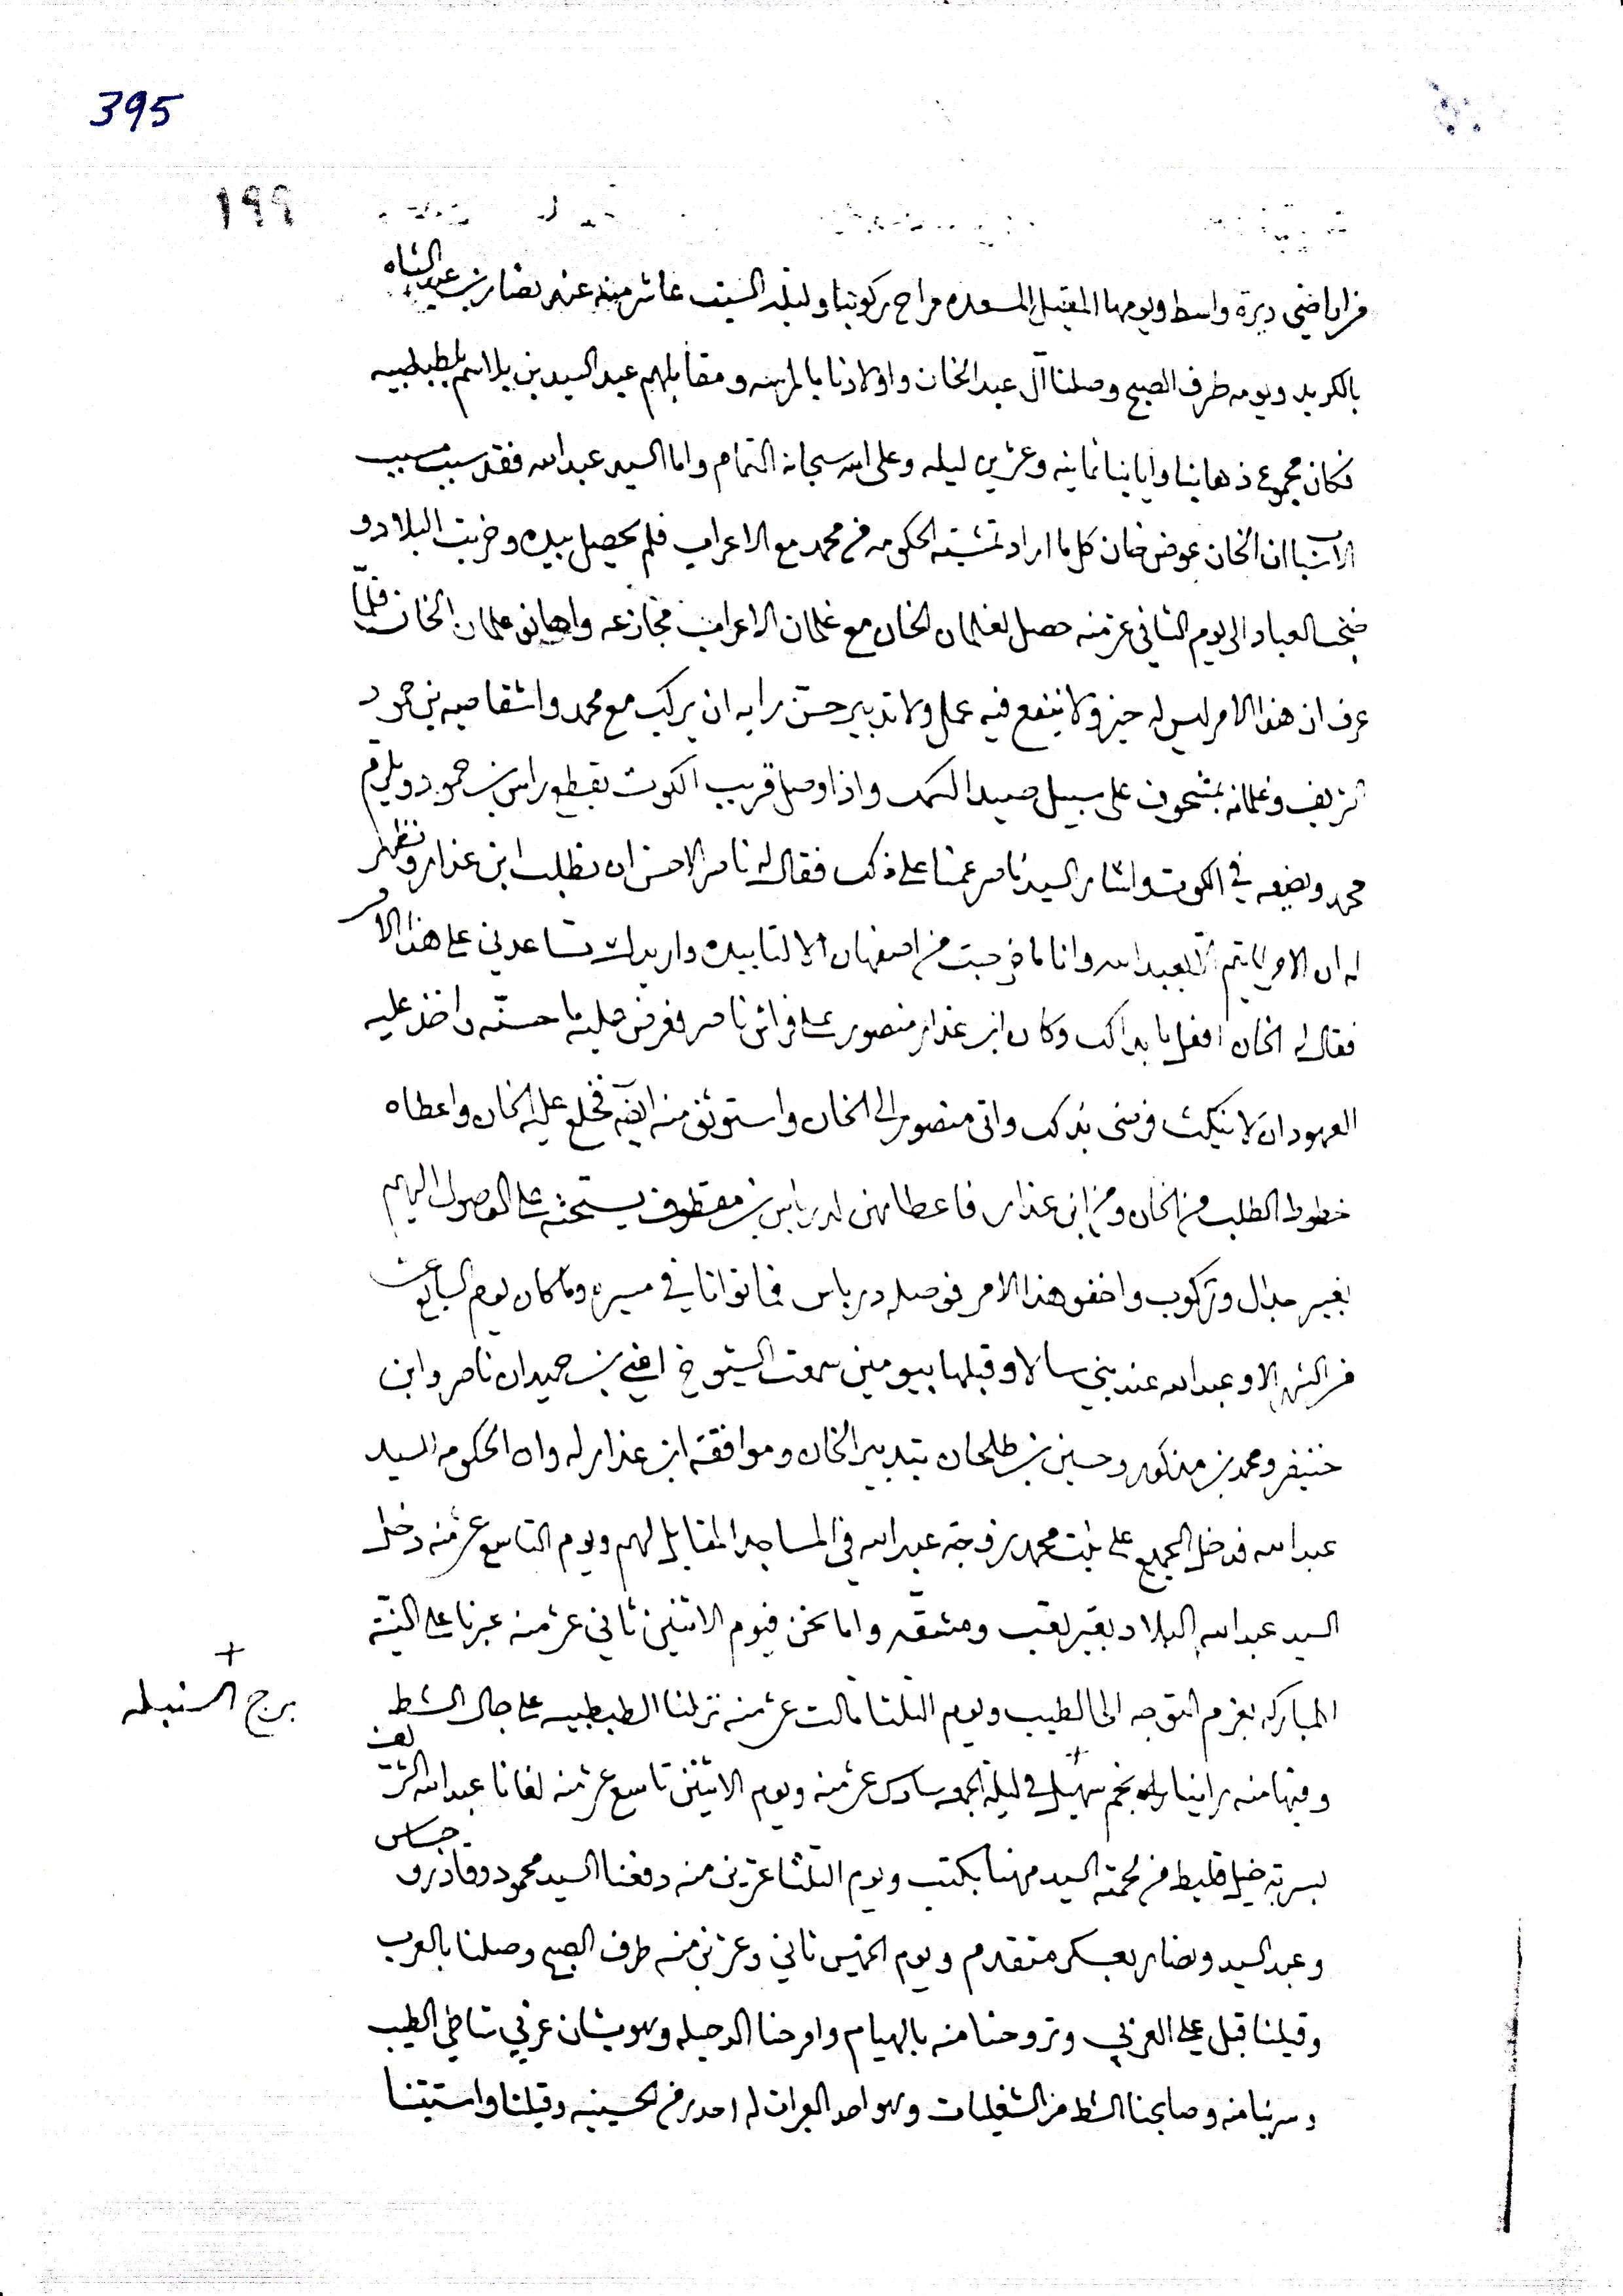 395
١٩٩
من اراضي ديرة واسط ويومها المقتبل المسعده مراح ركوبنا وليلة السبت عاشر منه عند نصار بن عبد الشاه
بالكريد ويومه طرف الصبح وصلنا آل عبد الخان واولادنا ومقابلهم عبد السيد بن بلاسم بلطبطبيه
فكان مجموع ذهابنا وايابنا ثمانيه وعشرين ليله وعلى الله سبحانه التمام واما السيد عبد الله فقد سبب مسبب
الاسباب ان الخان عوض خان كل ما اراد تمشية الحكومه من محمد مع الاعراب فلم يحصل بيده وخربت البلاد و
العباد الى يوم الثاني عشر منه حصل لغلمان الخان مع غلمان الاعراب واهانو غلمان الخان فلمّا
عرف ان هذا الامر ليس له خير ولا ينفع فيه عمل ولا تدبير حسّن رايه ان يركب مع محمد بن حمود
وغلمانه بمشحوف على سبيل صيد السمك واذا وصل قريب الكوت يقطع راس بن حمود ويلزم
محمد ويضعه في الكوت واشار السيد ناصر عمنا على ذلك فقال له ناصر الاحسن ان تطلب ابن عذار وتظهر
له ان الامر لا يتم الا بعبد الله وانا ما خرجت من اصفهان الا لتاييده واريدك تساعدني على هذا الامر
فقال له الخان افعل ما بدا لك وكان ابن عذار منصور على فراش ناصر فعرض عليه ما حسنه واخذ عليه
العهود ان لا ينكث فرضى بذلك واتى منصور الى الخان واستوثق منه ايضا فخلع عليه الخان واعطاه
خطوط الطلب من الخان ومن ابن عذار فاعطاهن لدرباس بن مقطوف يستحثه على الوصول اليهم
بغير جدال وركوب واخفو هذا الامر فوصله درباس في مسيره ولما كان يوم السابع عشر
من الشهر الا وعبد الله عند بني سالا وقبلها بيومين سمعت الشيوخ اعني بن حميدان ناصر وابن
خنيفر ومحمد بن مذكور وحسين بن طلحان بتدبير الخان وموافقة ابن عذار له وان الحكومه السيد
عبد الله فدخل الجميع على بنت محمد زوجة عبد الله في المساجد المقابل لهم ويوم التاسع عشر منه دخل
السيد عبد الله البلاد بغير تعب ومشقّه واما نحن فيوم الاثنين ثاني عشر منه عبرنا على النيّة
المباركه بعزم التوجه الى الطيب ويوم الثلثا ثالث عشر منه نزلنا الطبطبيه على جال الشط
وفيها منه راينا نجم سهيل في ليلة الجمعه سادس عشر منه ويوم الاثنين تاسع عشر منه لفانا عبد الله الشريف
بسربة خيل من لحمة السيد مهنا بكتب ويوم الثلثا عشرين منه دفعنا السيد محمود وقادر وجساس
وعبد السيد ونصار بعسكر متقدم ويوم الخميس ثاني وعشرين منه طرف الصبح وصلنا بالعرب
وقيلنا قبل على الغربي وتروحنا منه بالهيام ومرحنا الدحيله وهو يشان غربي شاطي الطيب
وسرينا منه وصابحنا الشط من الشغليات وهو احد من الحسينيه وقيلنا واستبتنا
+
برج السنبله